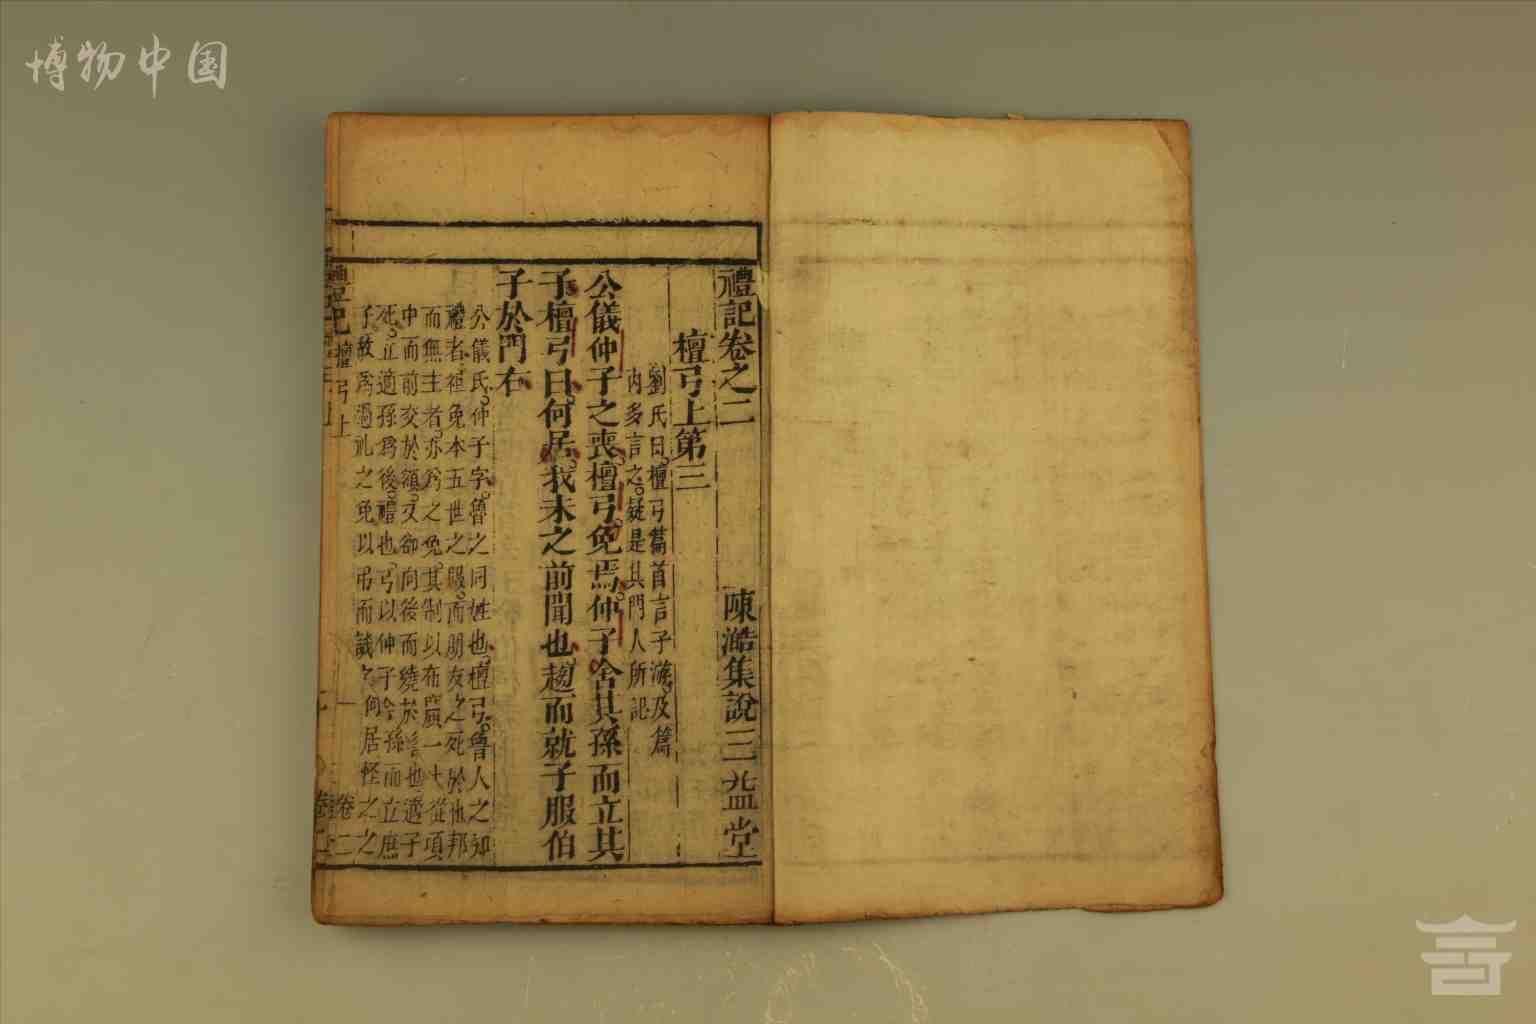 博物中国
禮記卷之二 陳澔集說 三益堂
檀弓上第三
劉氏曰檀弓篇首言子游及篇
内多言之疑是其門人所記
公儀仲子之喪檀弓免焉仲子舍其孫而立其
子檀弓曰何居我未之前聞也趨而就子服伯
子於門右
公儀氏仲子字魯之同姓也檀弓魯人之知
禮者袒免本五世之服而朋友之死於他邦
而無主者亦爲之免其制以布廣一寸從項
中而前交於額又卻向後而繞於髻也適子
死立適孫爲後禮也弓以仲子舍孫而立庶
子故爲過礼之免以弔而譏之何居怪之之
禮記 檀弓上 一 卷二